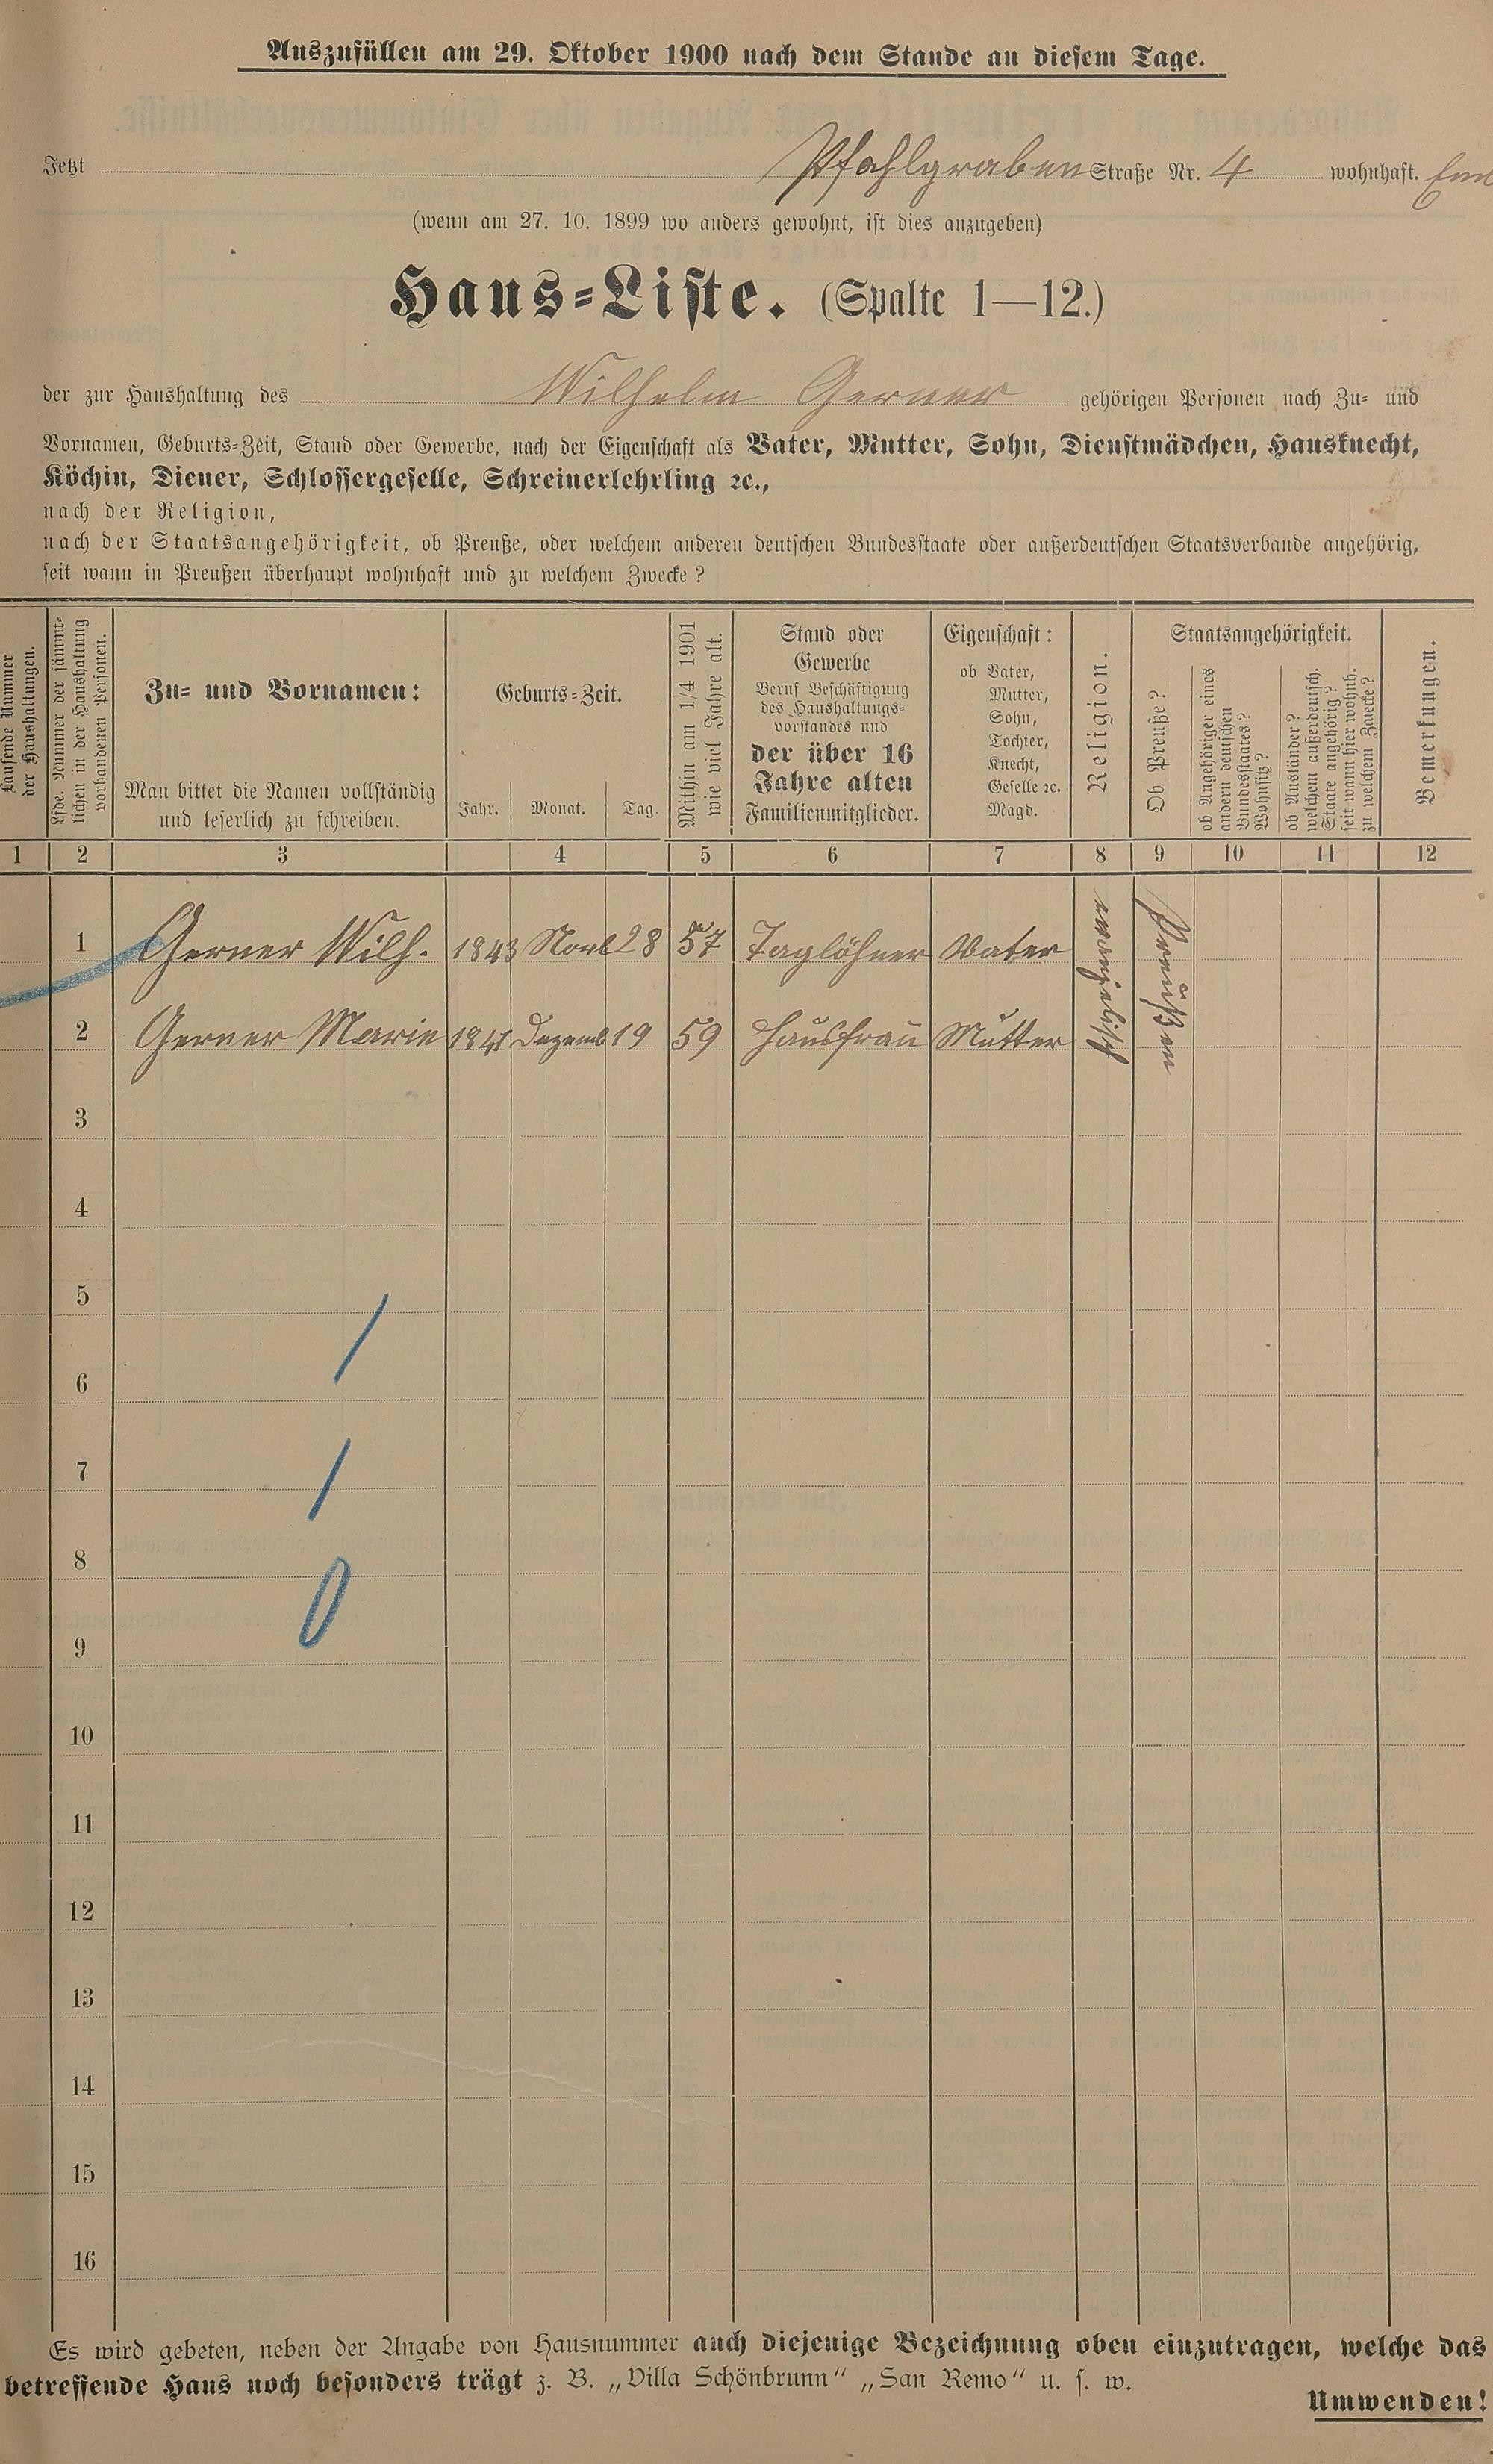 Auszufüllen am 29. Oktober 1900 nach dem Stande an diesem Tage.
Jetzt Pfahlgraben Straße Nr. 4 wohnhaft.
(wenn am 27. 10. 1899 wo anders gewohnt, ist dies anzugeben)
Haus-Liste. (Spalte 1—12.)
der zur Haushaltung des Wilhelm Gerner gehörigen Personen nach Zu- und
Vornamen, Geburts-Zeit, Stand oder Gewerbe, nach der Eigenschaft als Vater, Mutter, Sohn, Dienstmädchen, Hausknecht,
Köchin, Diener, Schlossergeselle, Schreinerlehrling ꝛc.,
nach der Religion,
nach der Staatsangehörigkeit, ob Preuße, oder welchem anderen deutschen Bundesstaate oder außerdeutschen Staatsverbande angehörig,
seit wann in Preußen überhaupt wohnhaft und zu welchem Zwecke?
Laufende Nummer
der Haushaltungen.
Lfde. Nummer der sämmt-
lichen in der Haushaltung
vorhandenen Personen.
Zu- und Vornamen:
Man bittet die Namen vollständig
und leserlich zu schreiben.
Geburts-Zeit.
Jahr. Monat. Tag.
Mithin am 1/4 1901
wie viel Jahre alt.
Stand oder
Gewerbe
Beruf Beschäftigung
des Haushaltungs-
vorstandes und
der über 16
Jahre alten
Familienmitglieder.
Eigenschaft:
ob Vater,
Mutter,
Sohn,
Tochter,
Knecht,
Geselle ꝛc.
Magd.
Religion.
Staatsangehörigkeit.
Ob Preuße?
ob Angehöriger eines
andern deutschen
Bundesstaates?
Wohnsitz?
ob Ausländer?
welchem außerdeutsch.
Staate angehörig?
seit wann hier wohnh.
zu welchem Zwecke?
Bemerkungen.
1 2 3 4 5 6 7 8 9 10 11 12
1 Gerner Wilh. 1843 Novb 28 57 Taglöhner Vater
2 Gerner Marie 1841 Dezemb 19 59 Hausfrau Mutter
evangelisch
Preußen
3
4
5
6
7
8
9
10
11
12
13
14
15
16
Es wird gebeten, neben der Angabe von Hausnummer auch diejenige Bezeichnung oben einzutragen, welche das
betreffende Haus noch besonders trägt z. B. „Villa Schönbrunn" „San Remo" u. s. w.
Umwenden!